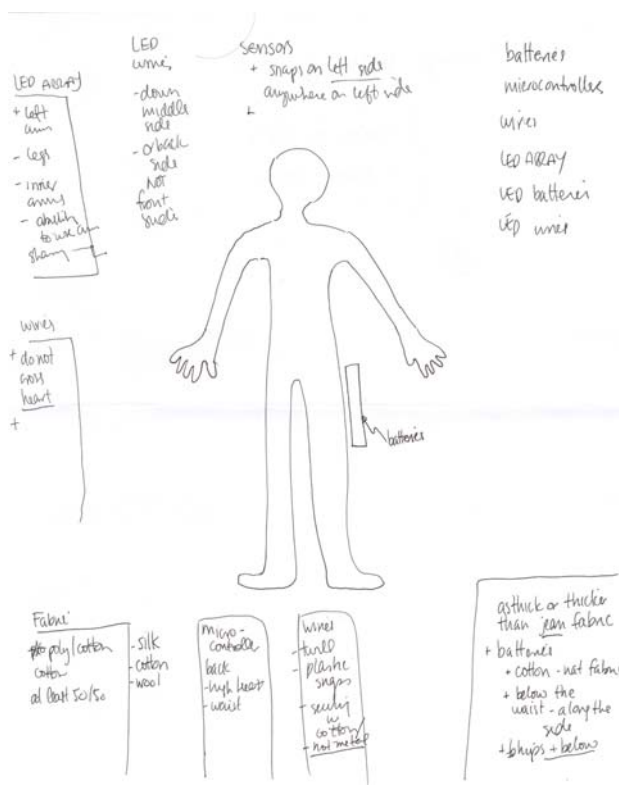 LED ARRAY
+ left
arm
- legs
- inner
arms
- ability
to use arm
LED
wires
- down
middle
side
- or back
side
not
front
side
sensors
+ snaps on left side
anywhere on left side
+
batteries
microcontrollers
wires
LED ARRAY
LED batteries
LED wires
wires
+ do not
cross
heart
+
batteries
Fabric
poly/cotton
cotton
at least 50/50
- silk
- cotton
- wool
micro-
controller
back
- high heart
- waist
wires
- plastic
snaps
- sewing
w
cotton
- not metal
as thick or thicker
than jean fabric
+ batteries
+ cotton - nat fabric
+ below the
waist - along the
side
+ hips + below